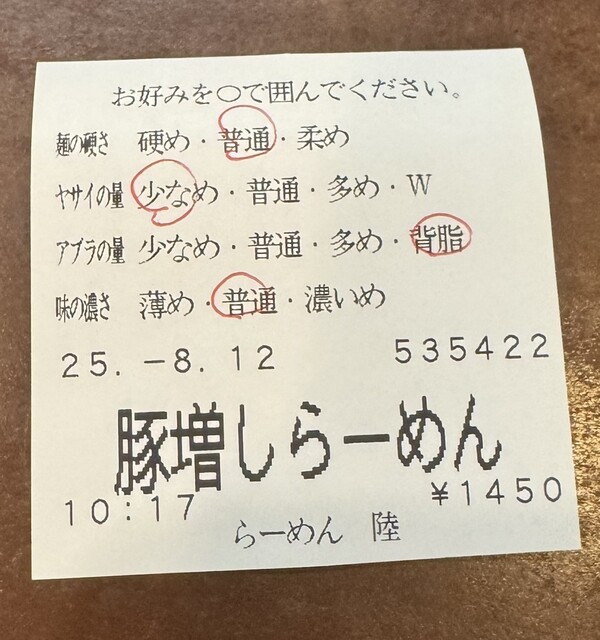 お好みを○で囲んでください。
麺の硬さ 硬め・普通・柔め
ヤサイの量 少なめ・普通・多め・W
アブラの量 少なめ・普通・多め・背脂
味の濃さ 薄め・普通・濃いめ
25.-8.12 535422
豚増しらーめん
10:17 ¥1450
らーめん 陸